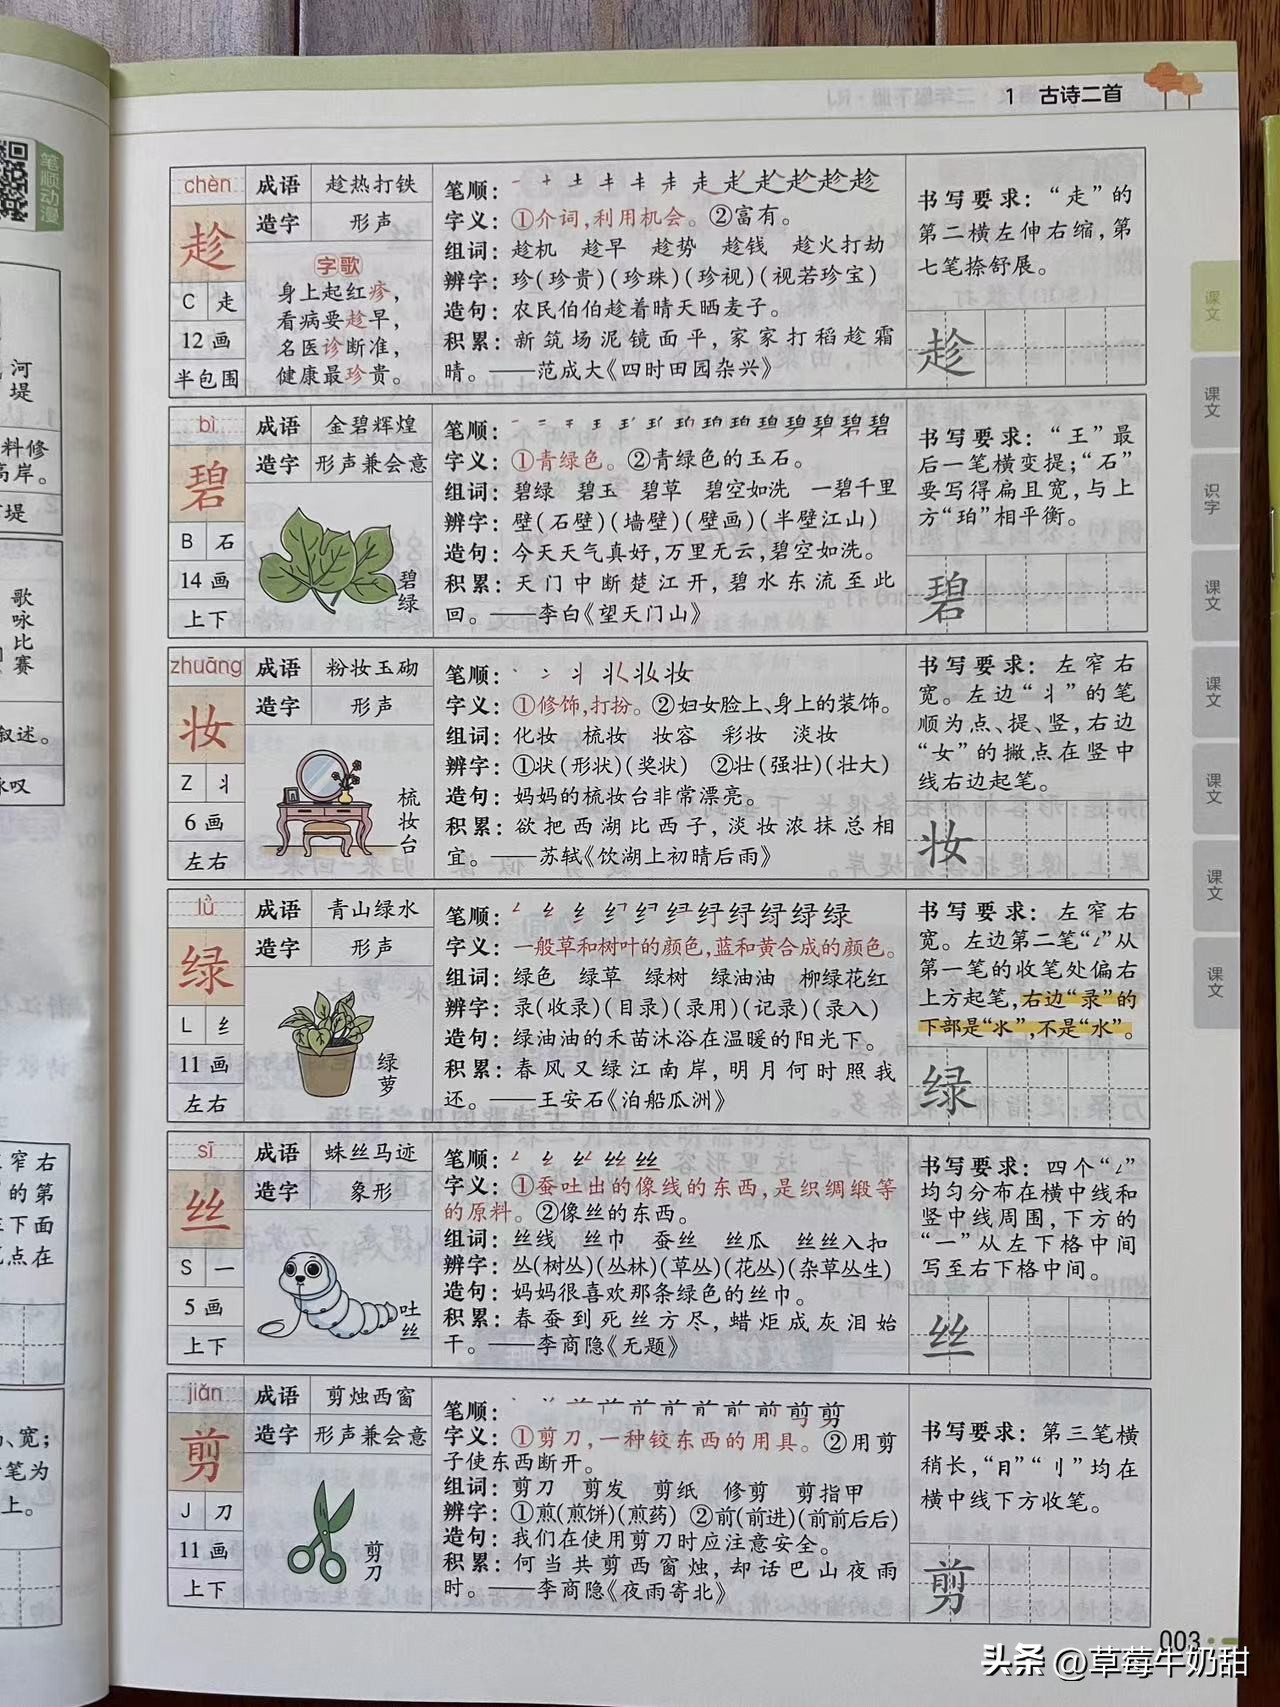 笔顺动漫
河堤
料修
高岸。
堤
歌咏比赛
叙述。
咏叹
窄右
的第
下面
点在
、宽;
笔为
上。
1 古诗二首
chèn 成语 趁热打铁
趁 造字 形声
C 走
12画
半包围
字歌
身上起红疹,
看病要趁早,
名医诊断准,
健康最珍贵。
笔顺:
字义:①介词,利用机会。②富有。
组词:趁机 趁早 趁势 趁钱 趁火打劫
辨字:珍(珍贵)(珍珠)(珍视)(视若珍宝)
造句:农民伯伯趁着晴天晒麦子。
积累:新筑场泥镜面平,家家打稻趁霜
晴。——范成大《四时田园杂兴》
书写要求:“走”的
第二横左伸右缩,第
七笔捺舒展。
趁
bì 成语 金碧辉煌
碧 造字 形声兼会意
B 石
14画
上下
碧绿
笔顺:
字义:①青绿色。②青绿色的玉石。
组词:碧绿 碧玉 碧草 碧空如洗 一碧千里
辨字:壁(石壁)(墙壁)(壁画)(半壁江山)
造句:今天天气真好,万里无云,碧空如洗。
积累:天门中断楚江开,碧水东流至此
回。——李白《望天门山》
书写要求:“王”最
后一笔横变提;“石”
要写得扁且宽,与上
方“珀”相平衡。
碧
zhuāng 成语 粉妆玉砌
妆 造字 形声
Z 丬
6画
左右
梳妆台
笔顺:
字义:①修饰,打扮。②妇女脸上、身上的装饰。
组词:化妆 梳妆 妆容 彩妆 淡妆
辨字:①状(形状)(奖状) ②壮(强壮)(壮大)
造句:妈妈的梳妆台非常漂亮。
积累:欲把西湖比西子,淡妆浓抹总相
宜。——苏轼《饮湖上初晴后雨》
书写要求:左窄右
宽。左边“丬”的笔
顺为点、提、竖,右边
“女”的撇点在竖中
线右边起笔。
妆
lǜ 成语 青山绿水
绿 造字 形声
L 纟
11画
左右
绿萝
笔顺:
字义:一般草和树叶的颜色,蓝和黄合成的颜色。
组词:绿色 绿草 绿树 绿油油 柳绿花红
辨字:录(收录)(目录)(录用)(记录)(录入)
造句:绿油油的禾苗沐浴在温暖的阳光下。
积累:春风又绿江南岸,明月何时照我
还。——王安石《泊船瓜洲》
书写要求:左窄右
宽。左边第二笔“𠃋”从
第一笔的收笔处偏右
上方起笔,右边“录”的
下部是“氺”,不是“水”。
绿
sī 成语 蛛丝马迹
丝 造字 象形
S 一
5画
上下
吐丝
笔顺:
字义:①蚕吐出的像线的东西,是织绸缎等
的原料。②像丝的东西。
组词:丝线 丝巾 蚕丝 丝瓜 丝丝入扣
辨字:丛(树丛)(丛林)(草丛)(花丛)(杂草丛生)
造句:妈妈很喜欢那条绿色的丝巾。
积累:春蚕到死丝方尽,蜡炬成灰泪始
干。——李商隐《无题》
书写要求:四个“𠃋”
均匀分布在横中线和
竖中线周围,下方的
“一”从左下格中间
写至右下格中间。
丝
jiǎn 成语 剪烛西窗
剪 造字 形声兼会意
J 刀
11画
上下
剪刀
笔顺:
字义:①剪刀,一种铰东西的用具。②用剪
子使东西断开。
组词:剪刀 剪发 剪纸 修剪 剪指甲
辨字:①煎(煎饼)(煎药) ②前(前进)(前前后后)
造句:我们在使用剪刀时应注意安全。
积累:何当共剪西窗烛,却话巴山夜雨
时。——李商隐《夜雨寄北》
书写要求:第三笔横
稍长,“月”“刂”均在
横中线下方收笔。
剪
课文
课文
识字
课文
课文
课文
课文
课文
003
头条 @草莓牛奶甜